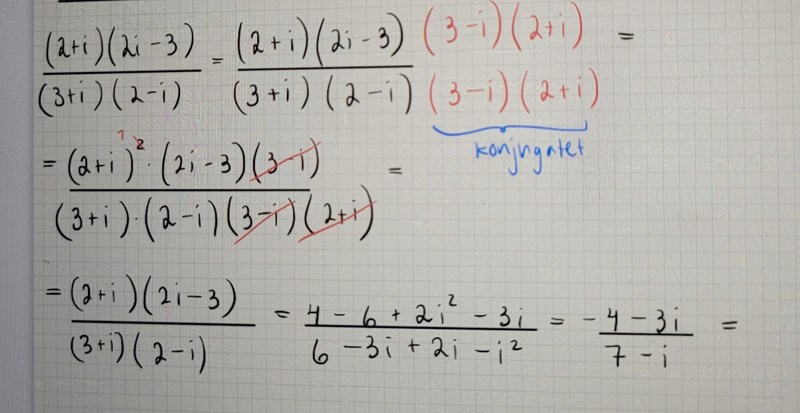 (2+i)(2i-3)/(3+i)(2-i) = (2+i)(2i-3)(3-i)(2+i)/(3+i)(2-i)(3-i)(2+i) =
konjugatet
= (2+i)^2·(2i-3)(3-i)/(3+i)·(2-i)(3-i)(2+i) =
= (2+i)(2i-3)/(3+i)(2-i) = 4-6+2i²-3i/6-3i+2i-i² = -4-3i/7-i =